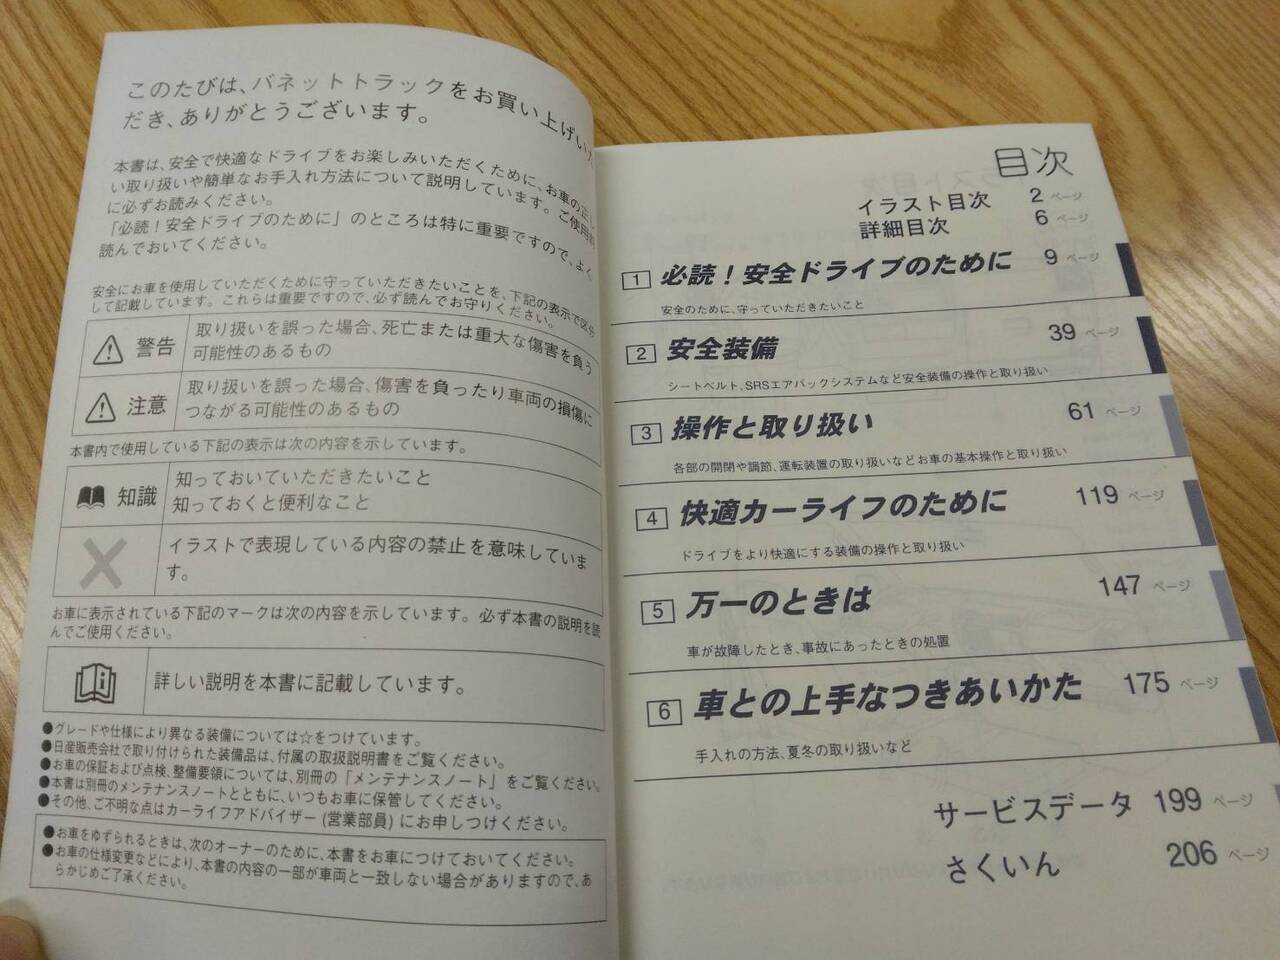 このたびは、バネットトラックをお買い上げいた
だき、ありがとうございます。
本書は、安全で快適なドライブをお楽しみいただくために、お車の正し
い取り扱いや簡単なお手入れ方法について説明しています。ご使用前
に必ずお読みください。
「必読！安全ドライブのために」のところは特に重要ですので、よく
読んでおいてください。
安全にお車を使用していただくために守っていただきたいことを、下記の表示で区分
して記載しています。これらは重要ですので、必ず読んでお守りください。
警告 取り扱いを誤った場合、死亡または重大な傷害を負う
可能性のあるもの
注意 取り扱いを誤った場合、傷害を負ったり車両の損傷に
つながる可能性のあるもの
本書内で使用している下記の表示は次の内容を示しています。
知識 知っておいていただきたいこと
知っておくと便利なこと
イラストで表現している内容の禁止を意味していま
す。
お車に表示されている下記のマークは次の内容を示しています。必ず本書の説明を読
んでご使用ください。
詳しい説明を本書に記載しています。
●グレードや仕様により異なる装備については☆をつけています。
●日産販売会社で取り付けられた装備品は、付属の取扱説明書をご覧ください。
●お車の保証および点検、整備要領については、別冊の「メンテナンスノート」をご覧ください。
●本書は別冊のメンテナンスノートとともに、いつもお車に保管してください。
●その他、ご不明な点はカーライフアドバイザー(営業部員)にお申しつけください。
●お車をゆずられるときは、次のオーナーのために、本書をお車につけておいてください。
●お車の仕様変更などにより、本書の内容の一部が車両と一致しない場合がありますので、あ
らかじめご了承ください。
目次
イラスト目次 2 ページ
詳細目次 6 ページ
1 必読！安全ドライブのために 9 ページ
安全のために、守っていただきたいこと
2 安全装備 39 ページ
シートベルト、SRSエアバックシステムなど安全装備の操作と取り扱い
3 操作と取り扱い 61 ページ
各部の開閉や調節、運転装置の取り扱いなどお車の基本操作と取り扱い
4 快適カーライフのために 119 ページ
ドライブをより快適にする装備の操作と取り扱い
5 万一のときは 147 ページ
車が故障したとき、事故にあったときの処置
6 車との上手なつきあいかた 175 ページ
手入れの方法、夏冬の取り扱いなど
サービスデータ 199 ページ
さくいん 206 ページ